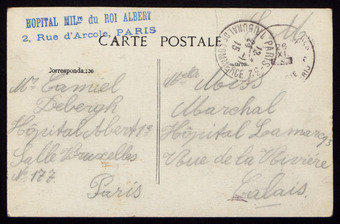 HOPITAL MILre du ROI ALBERT
2, Rue d'Arcole, PARIS
CARTE POSTALE
S. M.
Correspondance
Mr Camiel
Debergh
Hôpital Albert 1er
Salle Bruxelles
No 177
Paris
Miss
Marchal
Hôpital Lamarcq
Rue de la Rivière
Calais
PARIS
12
15
26
XI